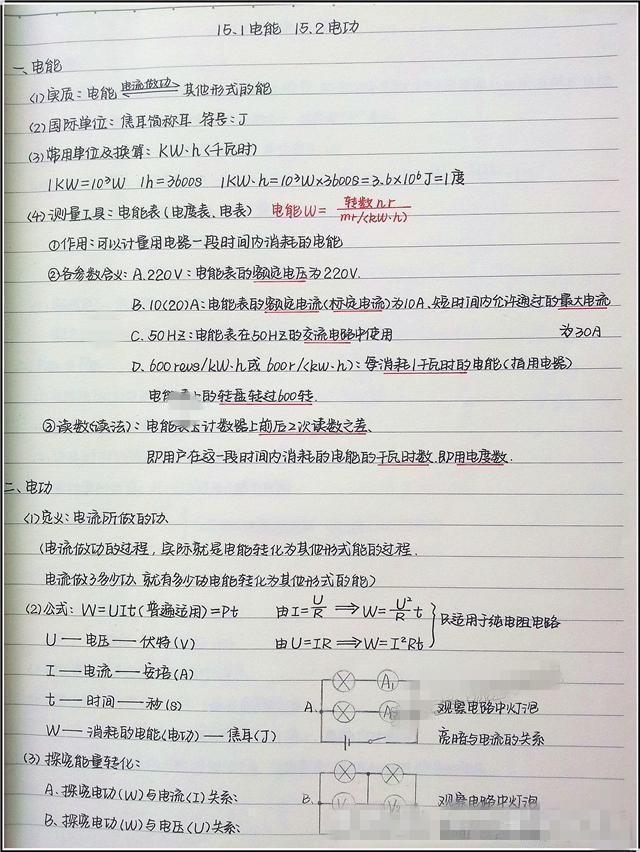 15.1电能 15.2电功
一、电能
(1)实质:电能 电流做功 其他形式的能
(2)国际单位:焦耳简称耳 符号:J
(3)常用单位及换算: KW·h(千瓦时)
1KW=10³W 1h=3600s 1KW·h=10³W×3600s=3.6×10⁶J=1度
(4)测量工具:电能表(电度表、电表) 电能W= 转数nr / mr/(kW·h)
①作用:可以计量用电器一段时间内消耗的电能
②各参数含义: A.220V:电能表的额定电压为220V.
B.10(20)A:电能表的额定电流(标定电流)为10A、短时间内允许通过的最大电流
为30A
C.50HZ:电能表在50HZ的交流电路中使用
D.600revs/kW·h或600r/(kW·h):每消耗1千瓦时的电能(指用电器)
电能 上的转盘转过600转.
③读数(读法):电能表 计数器上前后2次读数之差、
即用户在这一段时间内消耗的电能的千瓦时数.即用电度数.
二、电功
(1)定义:电流所做的功、
(电流做功的过程,实际就是电能转化为其他形式能的过程.
电流做了多少功、就有多少电能转化为其他形式的能)
(2)公式: W=UIt(普遍适用)=Pt 由I=U/R ⟹ W=U²/R t
由U=IR ⟹ W=I²Rt
只适用于纯电阻电路
U — 电压 — 伏特(V)
I — 电流 — 安培(A)
t — 时间 — 秒(s)
W — 消耗的电能(电功) — 焦耳(J)
A. A₁
A₂
观察电路中灯泡
亮暗与电流的关系
(3)探究能量转化:
A.探究电功(W)与电流(I)关系:
B、探究电功(W)与电压(U)关系:
B.
V₂
观察电路中灯泡